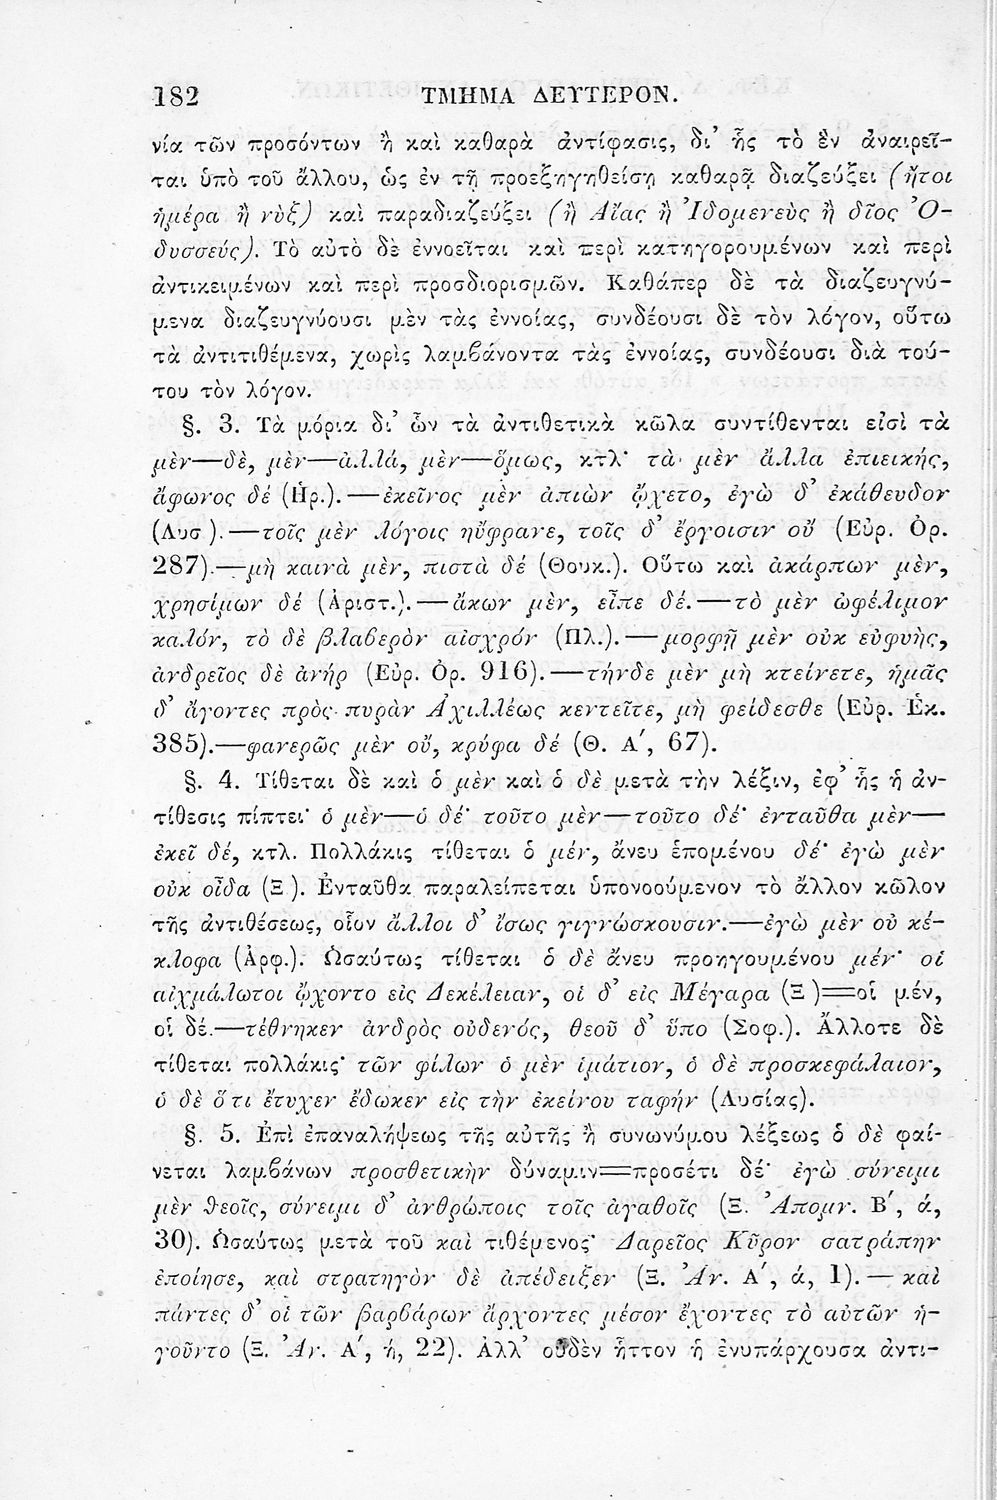 182 ΤΜΗΜΑ ΔΕΥΤΕΡΟΝ.
νία τῶν προσόντων ἢ καὶ καθαρὰ ἀντίφασις, δι’ ἧς τὸ ἓν ἀναιρεῖ-
ται ὑπὸ τοῦ ἄλλου, ὡς ἐν τῇ προεξηγηθείσῃ καθαρᾷ διαζεύξει (ἤτοι
ἡμέρα ἢ νὺξ) καὶ παραδιαζεύξει (ἢ Αἴας ἢ Ἰδομενεὺς ἢ δῖος Ὀ-
δυσσεύς). Τὸ αὐτὸ δὲ ἐννοεῖται καὶ περὶ κατηγορουμένων καὶ περὶ
ἀντικειμένων καὶ περὶ προσδιορισμῶν. Καθάπερ δὲ τὰ διαζευγνύ-
μενα διαζευγνύουσι μὲν τὰς ἐννοίας, συνδέουσι δὲ τὸν λόγον, οὕτω
τὰ ἀντιτιθέμενα, χωρὶς λαμβάνοντα τὰς ἐννοίας, συνδέουσι διὰ τού-
του τὸν λόγον.
§. 3. Τὰ μόρια δι’ ὧν τὰ ἀντιθετικὰ κῶλα συντίθενται εἰσὶ τὰ
μὲν—δὲ, μὲν—ἀλλά, μὲν—ὅμως, κτλ· τὰ μὲν ἄλλα ἐπιεικής,
ἄφωνος δέ (Ἡρ.).—ἐκεῖνος μὲν ἀπιὼν ᾤχετο, ἐγὼ δ’ ἐκάθευδον
(Λυσ).—τοῖς μὲν λόγοις ηὔφρανε, τοῖς δ’ ἔργοισιν οὔ (Εὐρ. Ὀρ.
287).—μὴ καινὰ μὲν, πιστὰ δέ (Θουκ.). Οὕτω καὶ ἀκάρπων μὲν,
χρησίμων δέ (Ἀριστ.).—ἄκων μὲν, εἶπε δέ.—τὸ μὲν ὠφέλιμον
καλόν, τὸ δὲ βλαβερὸν αἰσχρόν (Πλ.).—μορφῇ μὲν οὐκ εὐφυὴς,
ἀνδρεῖος δὲ ἀνήρ (Εὐρ. Ὀρ. 916).—τήνδε μὲν μὴ κτείνετε, ἡμᾶς
δ’ ἄγοντες πρὸς πυρὰν Ἀχιλλέως κεντεῖτε, μὴ φείδεσθε (Εὐρ. Ἑκ.
385).—φανερῶς μὲν οὔ, κρύφα δέ (Θ. Α΄, 67).
§. 4. Τίθεται δὲ καὶ ὁ μὲν καὶ ὁ δὲ μετὰ τὴν λέξιν, ἐφ’ ἧς ἡ ἀν-
τίθεσις πίπτει· ὁ μὲν—ὁ δέ· τοῦτο μὲν—τοῦτο δέ· ἐνταῦθα μὲν—
ἐκεῖ δέ, κτλ. Πολλάκις τίθεται ὁ μέν, ἄνευ ἑπομένου δέ· ἐγὼ μὲν
οὐκ οἶδα (Ξ). Ἐνταῦθα παραλείπεται ὑπονοούμενον τὸ ἄλλον κῶλον
τῆς ἀντιθέσεως, οἷον ἄλλοι δ’ ἴσως γιγνώσκουσιν.—ἐγὼ μὲν οὐ κέ-
κλοφα (Ἀρφ.). Ὡσαύτως τίθεται ὁ δὲ ἄνευ προηγουμένου μέν· οἱ
αἰχμάλωτοι ᾤχοντο εἰς Δεκέλειαν, οἱ δ’ εἰς Μέγαρα (Ξ)=οἱ μέν,
οἱ δέ.—τέθνηκεν ἀνδρὸς οὐδενός, θεοῦ δ’ ὕπο (Σοφ.). Ἄλλοτε δὲ
τίθεται πολλάκις· τῶν φίλων ὁ μὲν ἱμάτιον, ὁ δὲ προσκεφάλαιον,
ὁ δὲ ὅτι ἔτυχεν ἔδωκεν εἰς τὴν ἐκείνου ταφήν (Λυσίας).
§. 5. Ἐπὶ ἐπαναλήψεως τῆς αὐτῆς ἢ συνωνύμου λέξεως ὁ δὲ φαί-
νεται λαμβάνων προσθετικὴν δύναμιν=προσέτι δέ· ἐγὼ σύνειμι
μὲν θεοῖς, σύνειμι δ’ ἀνθρώποις τοῖς ἀγαθοῖς (Ξ. Ἀπομν. Β΄, ά,
30). Ὡσαύτως μετὰ τοῦ καὶ τιθέμενος· Δαρεῖος Κῦρον σατράπην
ἐποίησε, καὶ στρατηγὸν δὲ ἀπέδειξεν (Ξ. Ἀν. Α΄, ά, 1).—καὶ
πάντες δ’ οἱ τῶν βαρβάρων ἄρχοντες μέσον ἔχοντες τὸ αὑτῶν ἡ-
γοῦντο (Ξ. Ἀν. Α΄, ή, 22). Ἀλλ’ οὐδὲν ἧττον ἡ ἐνυπάρχουσα ἀντι-